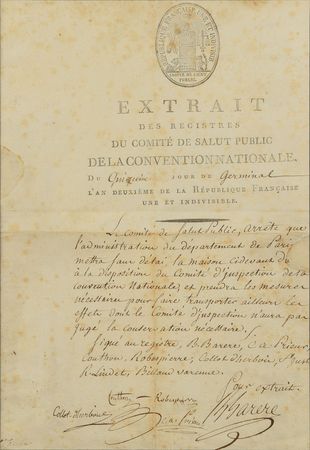 RÉPUBLIQUE FRANÇAISE UNE ET INDIVISIBLE
COMITÉ DE SALUT
PUBLIC
EXTRAIT
DES REGISTRES
DU COMITÉ DE SALUT PUBLIC
DE LA CONVENTION NATIONALE.
DU JOUR DE Germinal
L'AN DEUXIÈME DE LA RÉPUBLIQUE FRANÇAISE
UNE ET INDIVISIBLE.
Le Comité de Salut Public, arrête que
l'administration du département de Paris
mettra sans délai, la maison cidevant
à la disposition du Comité d'inspection de la
convention Nationale; et prendra les mesures
nécessaires pour faire transporter ailleurs les
effets dont le Comité d'inspection n'aura pas
jugé la conservation nécessaire.
Signé au registre, B. Barere, C. a. Prieur
Couthon, Robespierre; Collot d'herbois, St Just
R. Lindet, Billaud varenne.
Pour extrait.
Couthon Robespierre
Collot d'herbois C. a. Prieur B Barere